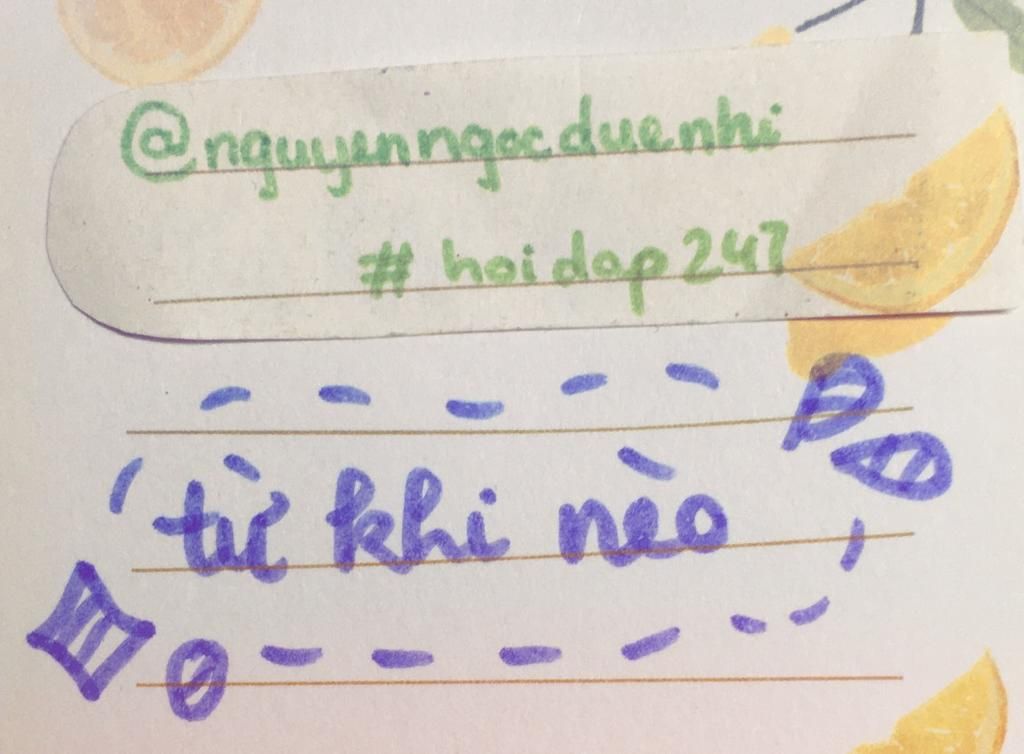 @nguyenngocduenhi
# hoidap247
từ khi nèo